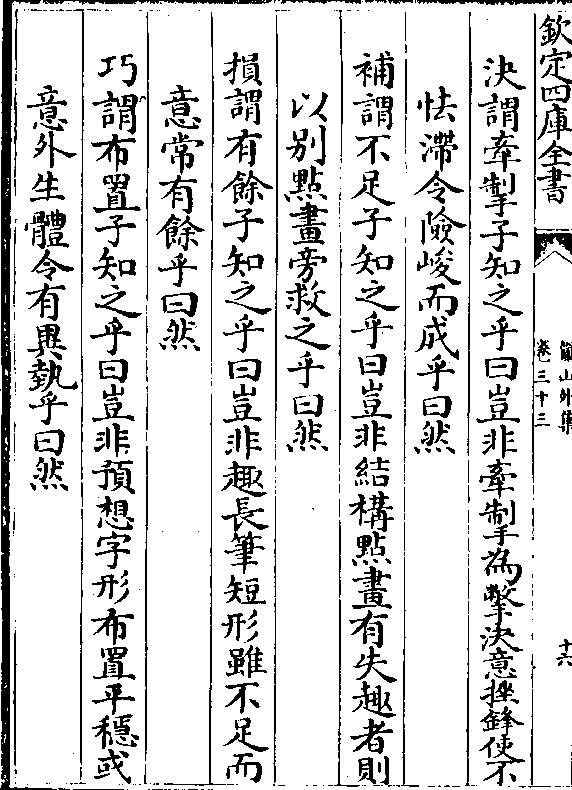 欽定四庫全書
儼山外集
卷三十三
十六
決謂牽掣子知之乎曰豈非牽掣為撆決意挫鋒使不
怯滯令險峻而成乎曰然
補謂不足子知之乎曰豈非結構點畫有失趣者則
以別點畫旁救之乎曰然
損謂有餘子知之乎曰豈非趣長筆短形雖不足而
意常有餘乎曰然
巧謂布置子知之乎曰豈非預想字形布置平穩或
意外生體令有異埶乎曰然